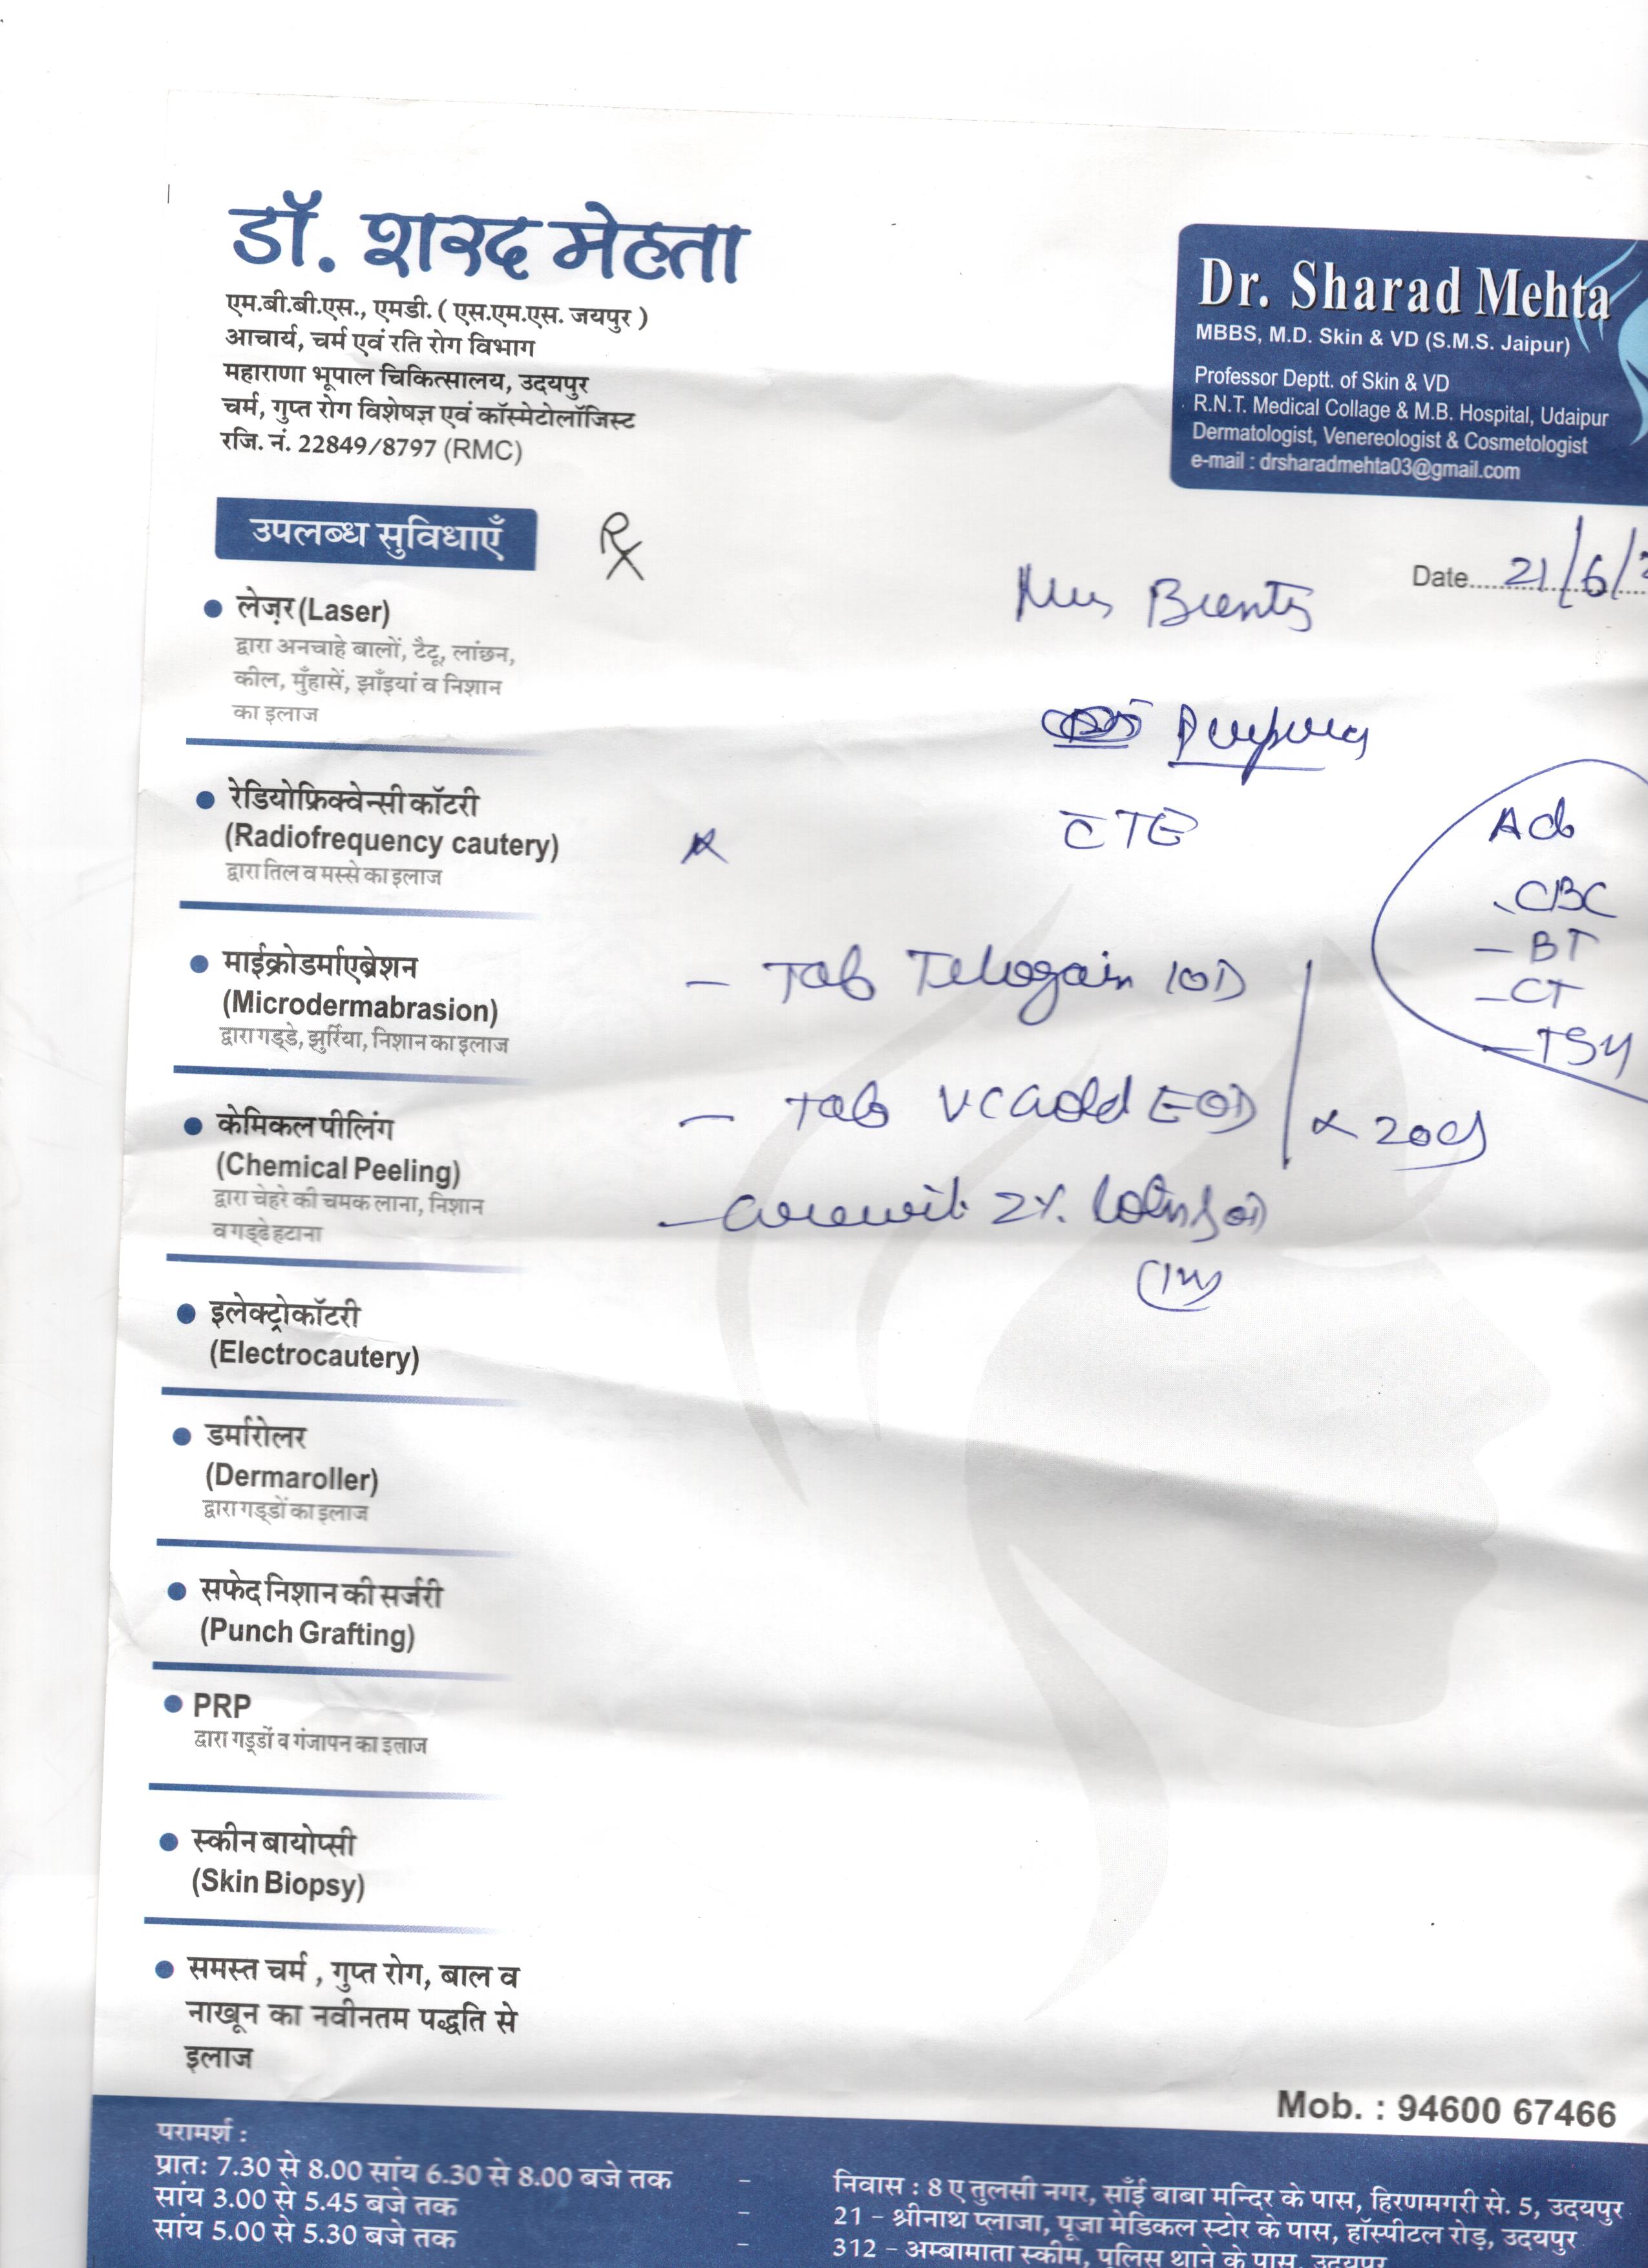 डॉ. शरद मेहता
एम.बी.बी.एस., एमडी. ( एस.एम.एस. जयपुर )
आचार्य, चर्म एवं रति रोग विभाग
महाराणा भूपाल चिकित्सालय, उदयपुर
चर्म, गुप्त रोग विशेषज्ञ एवं कॉस्मेटोलॉजिस्ट
रजि. नं. 22849/8797 (RMC)
Dr. Sharad Mehta
MBBS, M.D. Skin & VD (S.M.S. Jaipur)
Professor Deptt. of Skin & VD
R.N.T. Medical Collage & M.B. Hospital, Udaipur
Dermatologist, Venereologist & Cosmetologist
e-mail : drsharadmehta03@gmail.com
Date 21/6/
उपलब्ध सुविधाएँ
लेज़र (Laser)
द्वारा अनचाहे बालों, टैटू, लांछन,
कील, मुँहासें, झाँइयां व निशान
का इलाज
रेडियोफ्रिक्वेन्सी कॉटरी
(Radiofrequency cautery)
द्वारा तिल व मस्से का इलाज
माईक्रोडर्माएब्रेशन
(Microdermabrasion)
द्वारा गड्डे, झुर्रिया, निशान का इलाज
केमिकल पीलिंग
(Chemical Peeling)
द्वारा चेहरे की चमक लाना, निशान
व गड्ढे हटाना
इलेक्ट्रोकॉटरी
(Electrocautery)
डर्मारोलर
(Dermaroller)
द्वारा गड्डों का इलाज
सफेद निशान की सर्जरी
(Punch Grafting)
PRP
द्वारा गड्डों व गंजापन का इलाज
स्कीन बायोप्सी
(Skin Biopsy)
समस्त चर्म , गुप्त रोग, बाल व
नाखून का नवीनतम पद्धति से
इलाज
Rx
Purpura
CTE
- Tab Telogain 1OD
- Tab VC Gold EOD
x 20d
2%
Adv
- CBC
- BT
- CT
- TSH
Mob. : 94600 67466
परामर्श :
प्रातः 7.30 से 8.00 सांय 6.30 से 8.00 बजे तक -
सांय 3.00 से 5.45 बजे तक -
सांय 5.00 से 5.30 बजे तक -
निवास : 8 ए तुलसी नगर, साँई बाबा मन्दिर के पास, हिरणमगरी से. 5, उदयपुर
21 - श्रीनाथ प्लाजा, पूजा मेडिकल स्टोर के पास, हॉस्पीटल रोड़, उदयपुर
312 - अम्बामाता स्कीम, पुलिस थाने के पास, उदयपुर